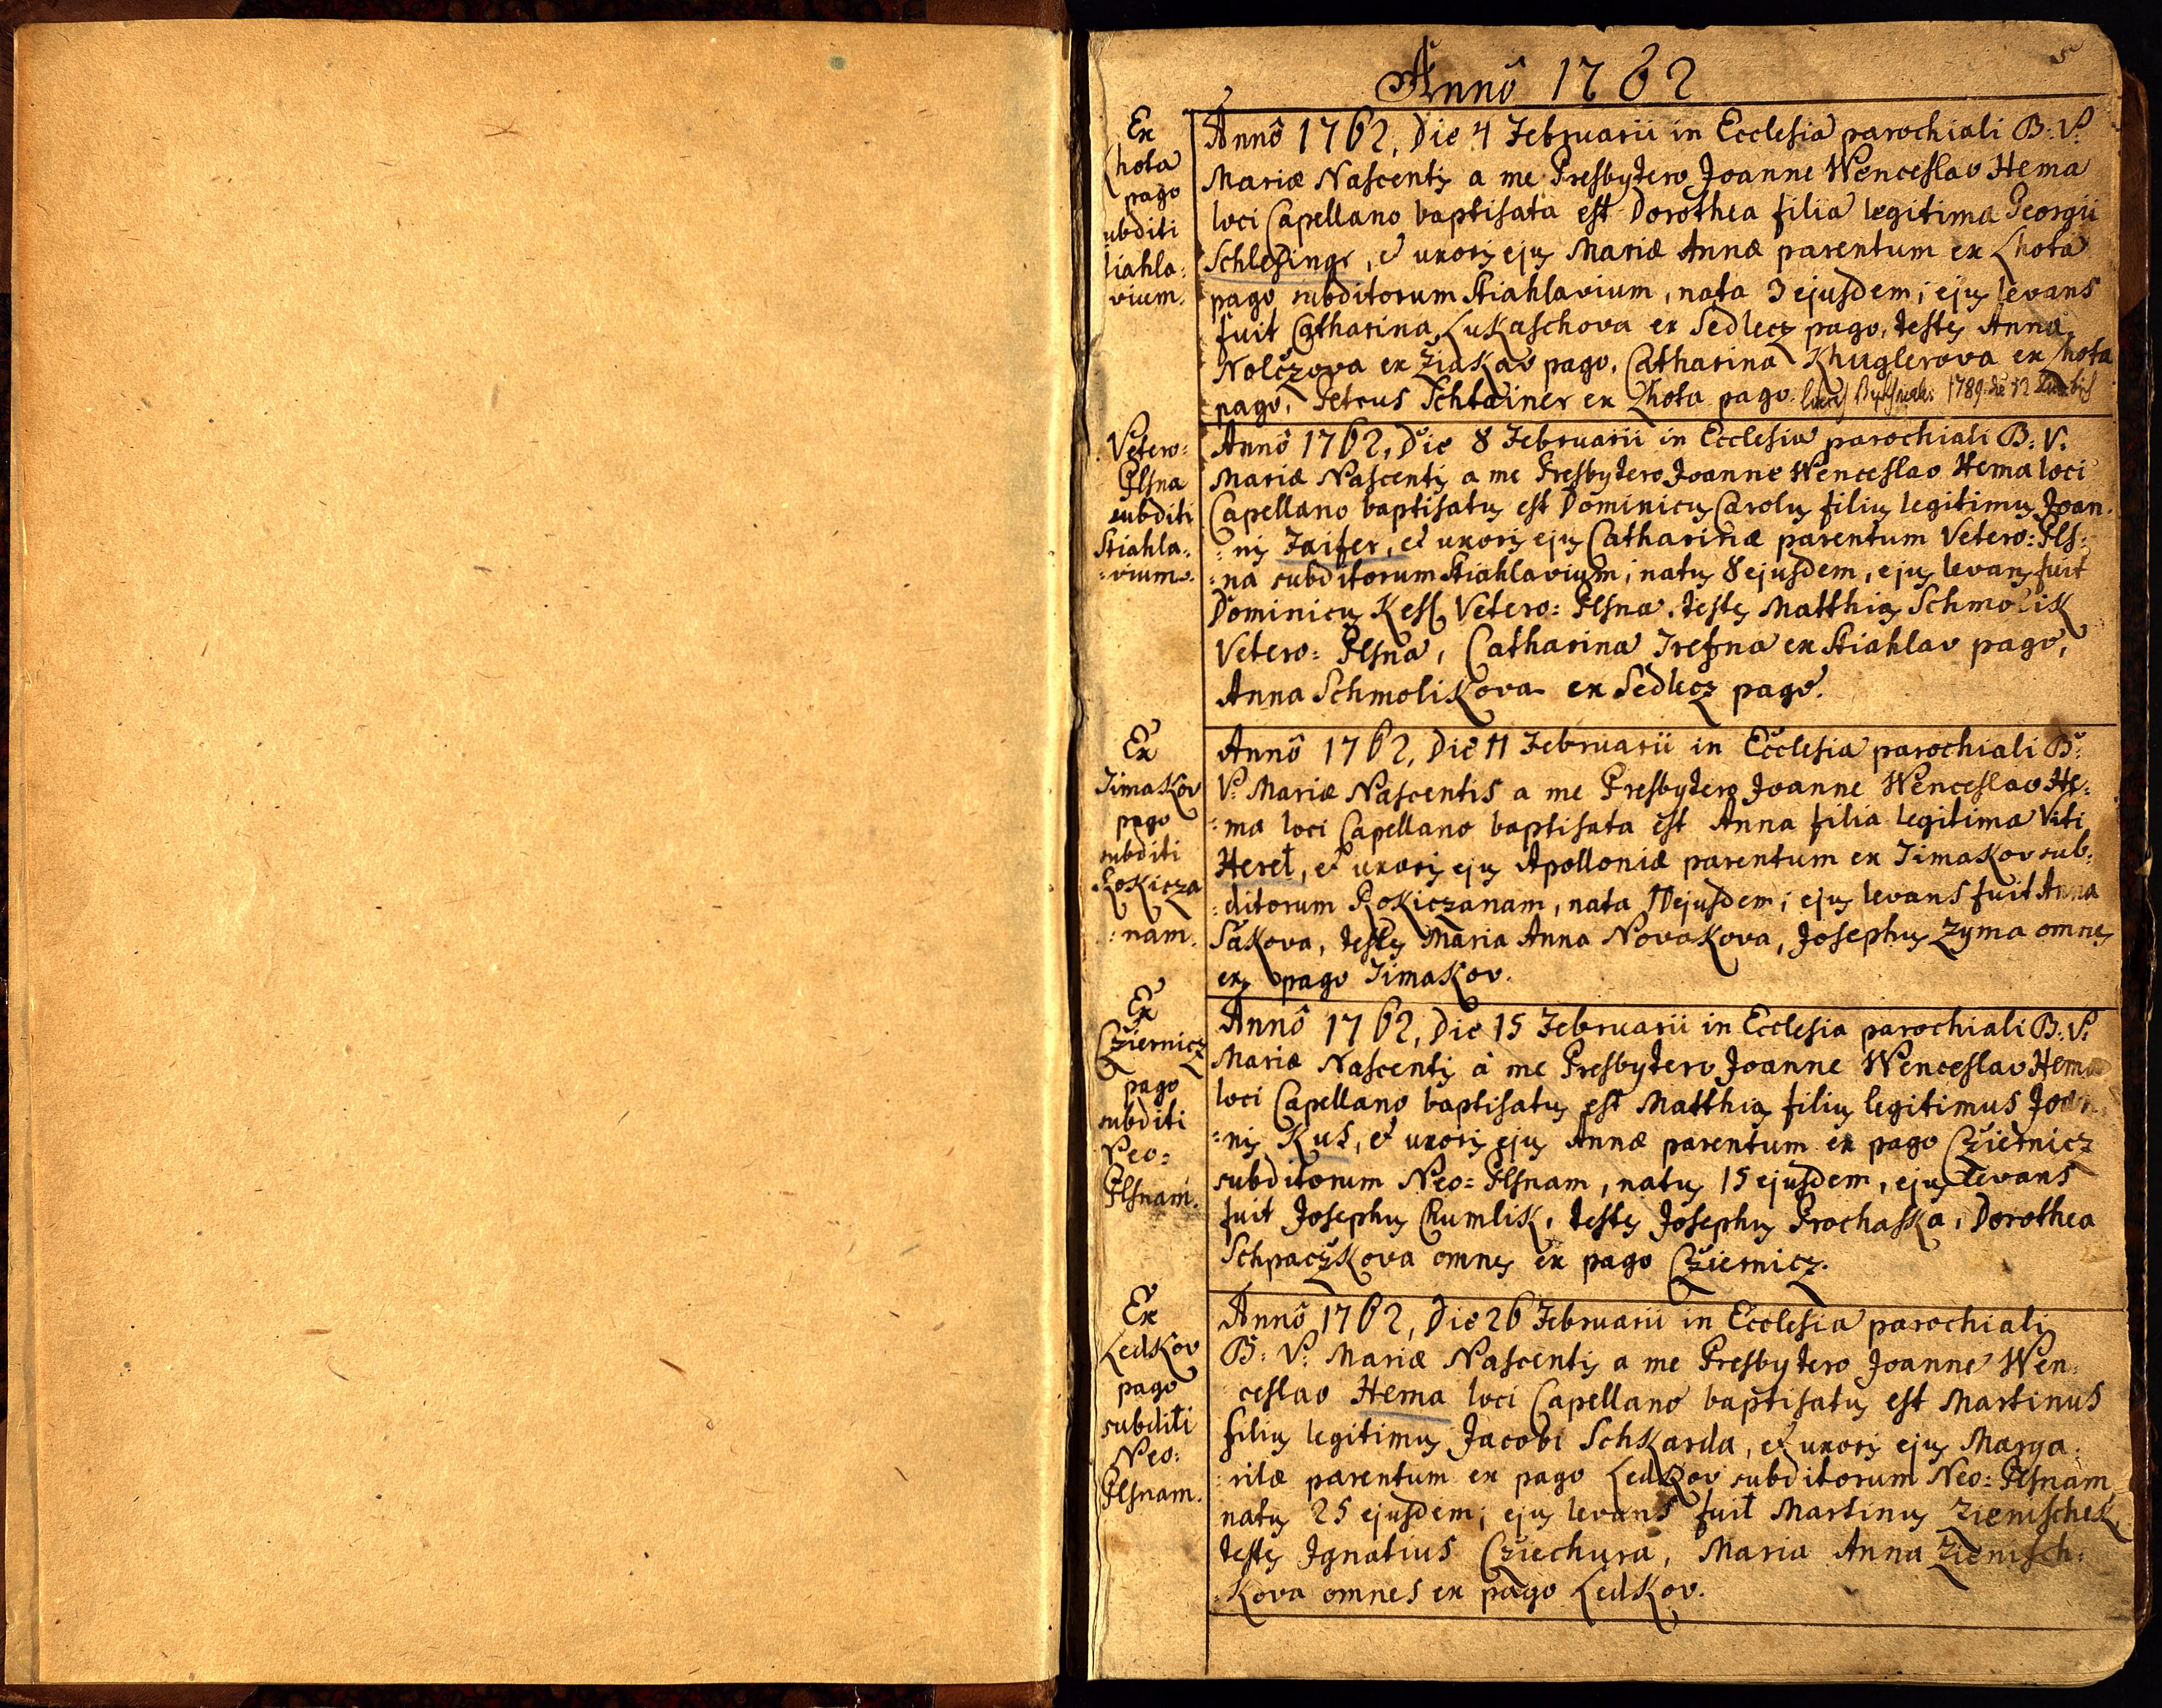 5
Annô 1762
Ex
Lhota
pago
subditi
Stiahla:
vium.
Annô 1762, Die 4 Februarii in Ecclesia parochiali B: V:
Mariæ Nascentis a me Presbytero Joanne Wenceslao Hema
loci Capellano baptisata est Dorothea filia legitima Georgii
Schlezingr, et uxoris ejus Mariæ Annæ parentum ex Lhota
pago subditorum Stiahlavium, nata 3 ejusdem; ejus levans
fuit Catharina Lukaschova ex Sedlecz pago, testes Anna
Nolčzova ex Žiakav pago, Catharina Khuglerova ex Lhota
pago, Petrus Schtainer ex Lhota pago. 1789 die 12
Vetero:
Plsna
subditi
Stiahla:
:vium.
Annô 1762, Die 8 Februarii in Ecclesia parochiali B: V:
Mariæ Nascentis a me Presbytero Joanne Wenceslao Hema loci
Capellano baptisatus est Dominicus Carolus filius legitimus Joan:
:nis Faifer, et uxoris ejus Catharinæ parentum Vetero: Pls:
:na subditorum Stiahlavium; natus 8 ejusdem, ejus levans fuit
Dominicus Kesl Vetero: Plsna, testes Matthias Schmolik
Vetero: Plsna, Catharina Trefsna ex Stiahlav pago,
Anna Schmolikova ex Sedlecz pago.
Ex
Timakov
pago
subditi
Rokicza
:nam.
Annô 1762, Die 11 Februarii in Ecclesia parochiali B:
V: Mariæ Nascentis a me Presbytero Joanne Wenceslao He:
:ma loci Capellano baptisata est Anna filia legitima Viti
Heret, et uxoris ejus Apolloniæ parentum ex Timakov sub:
:ditorum Rokiczanam, nata 10 ejusdem; ejus levans fuit Anna
Sakova, testes Maria Anna Novakova, Josephus Zyma omnes
ex pago Timakov.
Ex
Cžiernicz
pago
subditi
Neo:
Plsnam.
Annô 1762, Die 15 Februarii in Ecclesia parochiali B: V:
Mariæ Nascentis à me Presbytero Joanne Wenceslao Hema
loci Capellano baptisatus est Matthias filius legitimus Joan:
:nis Kus, et uxoris ejus Annæ parentum ex pago Cžiernicz
subditorum Neo: Plsnam, natus 15 ejusdem, ejus levans
fuit Josephus Chumlik, testes Josephus Prochaska, Dorothea
Schpaczkova omnes ex pago Cžiernicz.
Ex
Ledkov
pago
subditi
Neo:
Plsnam.
Annô 1762, Die 26 Februarii in Ecclesia parochiali
B: V: Mariæ Nascentis a me Presbytero Joanne Wen:
ceslao Hema loci Capellano baptisatus est Martinus
filius legitimus Jacobi Schkarda, et uxoris ejus Marga:
:ritæ parentum ex pago Ledkov subditorum Neo: Plsnam
natus 25 ejusdem; ejus levans fuit Martinus Zienischek,
testes Ignatius Cžiechura, Maria Anna Zienisch:
:kova omnes ex pago Ledkov.